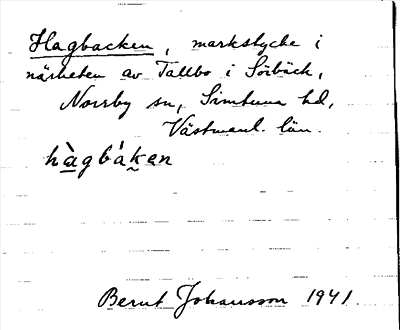 Hagbacken, markstycke i
närheten av Tallbo i Sörbäck,
Norrby sn, Simtuna hd,
Västmanl. län.
hàgbáken
Bernt Johansson 1941